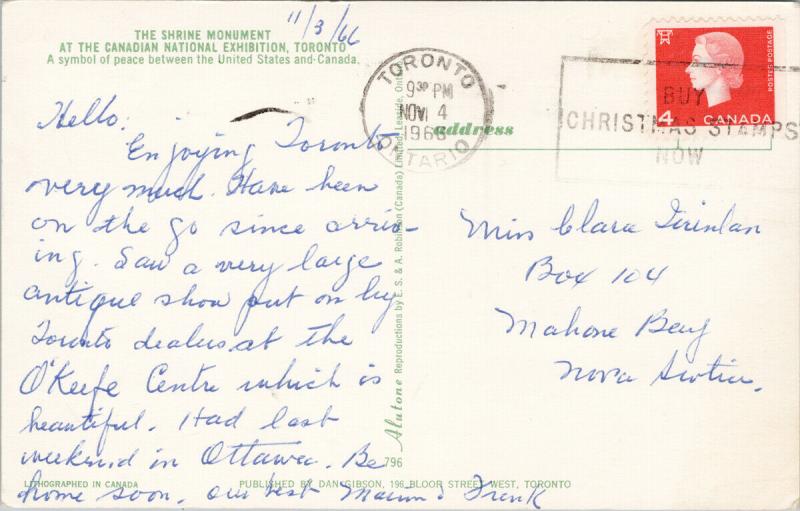 11/3/66
THE SHRINE MONUMENT
AT THE CANADIAN NATIONAL EXHIBITION, TORONTO
A symbol of peace between the United States and Canada.
TORONTO
9 30 PM
NOV 4
1966
ONTARIO
BUY
CHRISTMAS STAMPS
NOW
POSTES POSTAGE
4 CANADA
address
Hello.
Enjoying Toronto
very much. Have been
on the go since arriv-
ing. Saw a very large
antique show put on by
Toronto dealers at the
O'Keefe Centre which is
beautiful. Had last
weekend in Ottawa. Be
home soon. our best Marion & Frank
Miss Clara
Box 104
Mahone Bay
Nova Scotia.
Alutone Reproductions by E. S. & A. Robinson (Canada) Limited, Leaside, Ont.
796
LITHOGRAPHED IN CANADA
PUBLISHED BY DAN GIBSON, 196 BLOOR STREET WEST, TORONTO